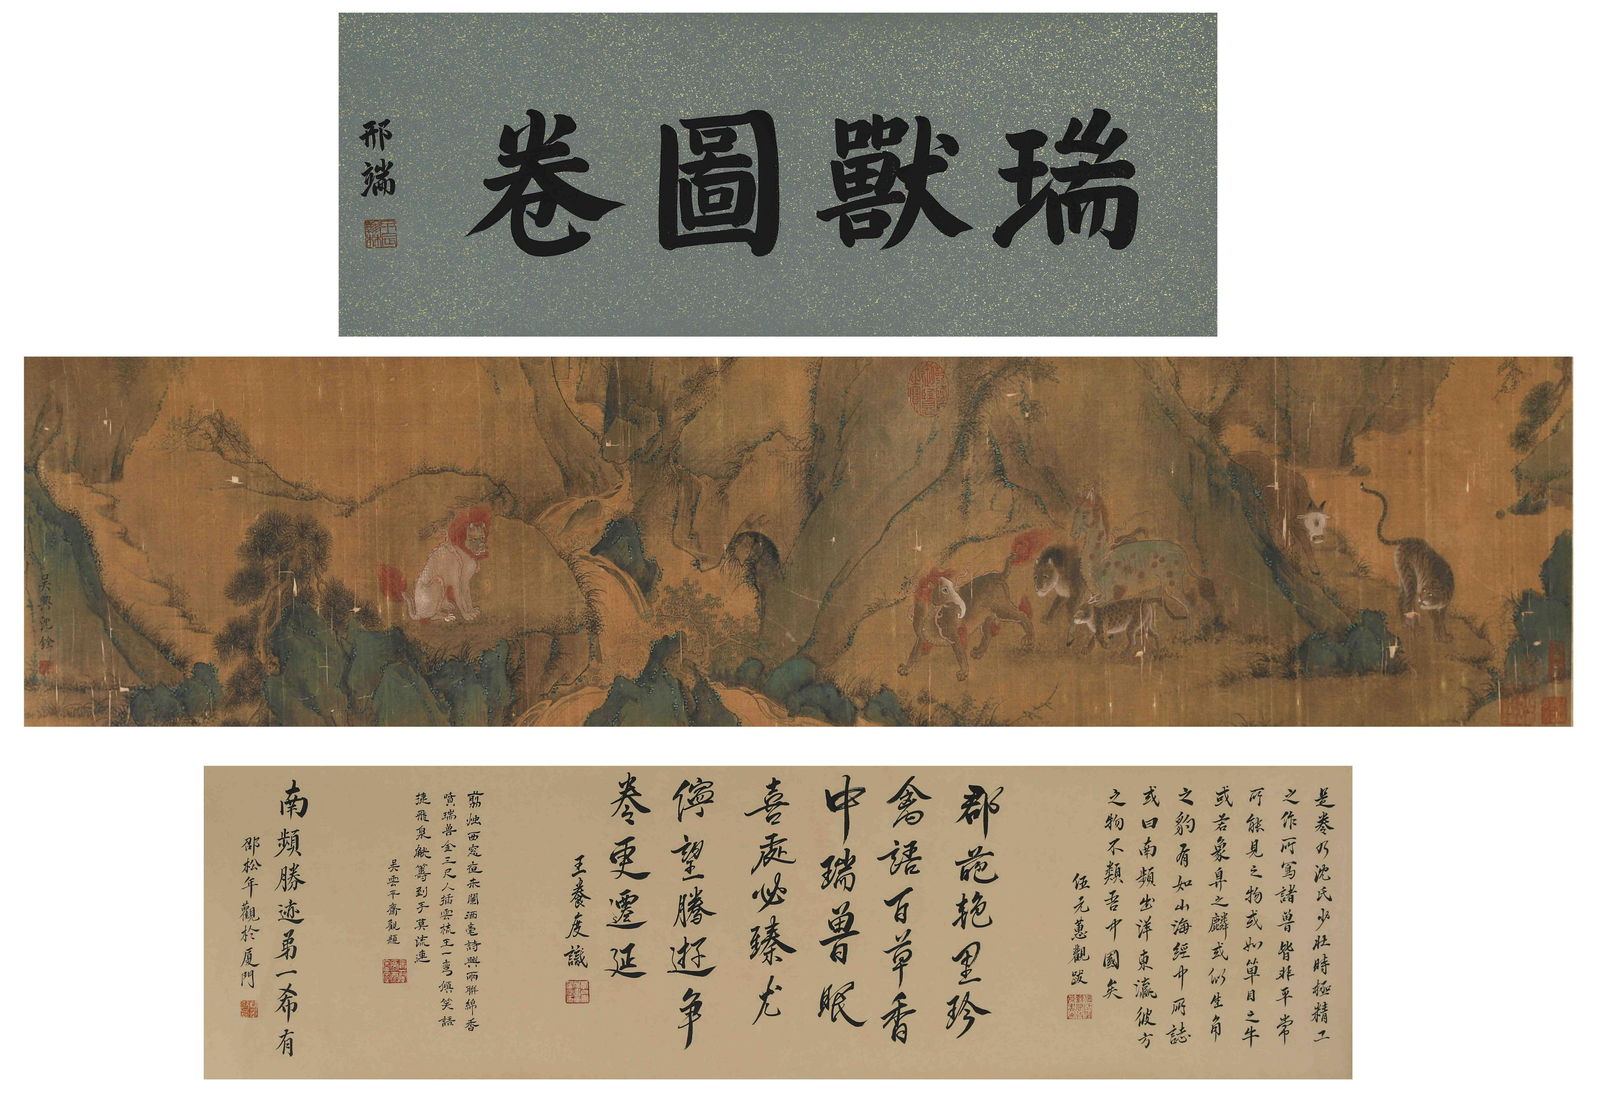 瑞獸圖卷
邢端
吳興沈銓
是卷乃沈氏少壯時極精工
之作所寫諸獸皆非平常
所能見之物或如單目之牛
或若象鼻之麟或似生角
之豹有如山海經中所誌
或曰南蘋出洋東瀛彼方
之物不類吾中國矣
伍元蕙觀跋
郡葩艷里珍
禽語百草香
中瑞兽眠
喜處必臻尤
儜望勝遊争
卷更遷延
王養度識
窗夜未闌洒毫詩興兩聯綿香
噴瑞兽金三尺人插雲梳玉一彎傾笑語
捷飛泉觥籌到手莫流連
吳雲平齋觀題
南蘋勝迹第一希有
邵松年觀於厦門